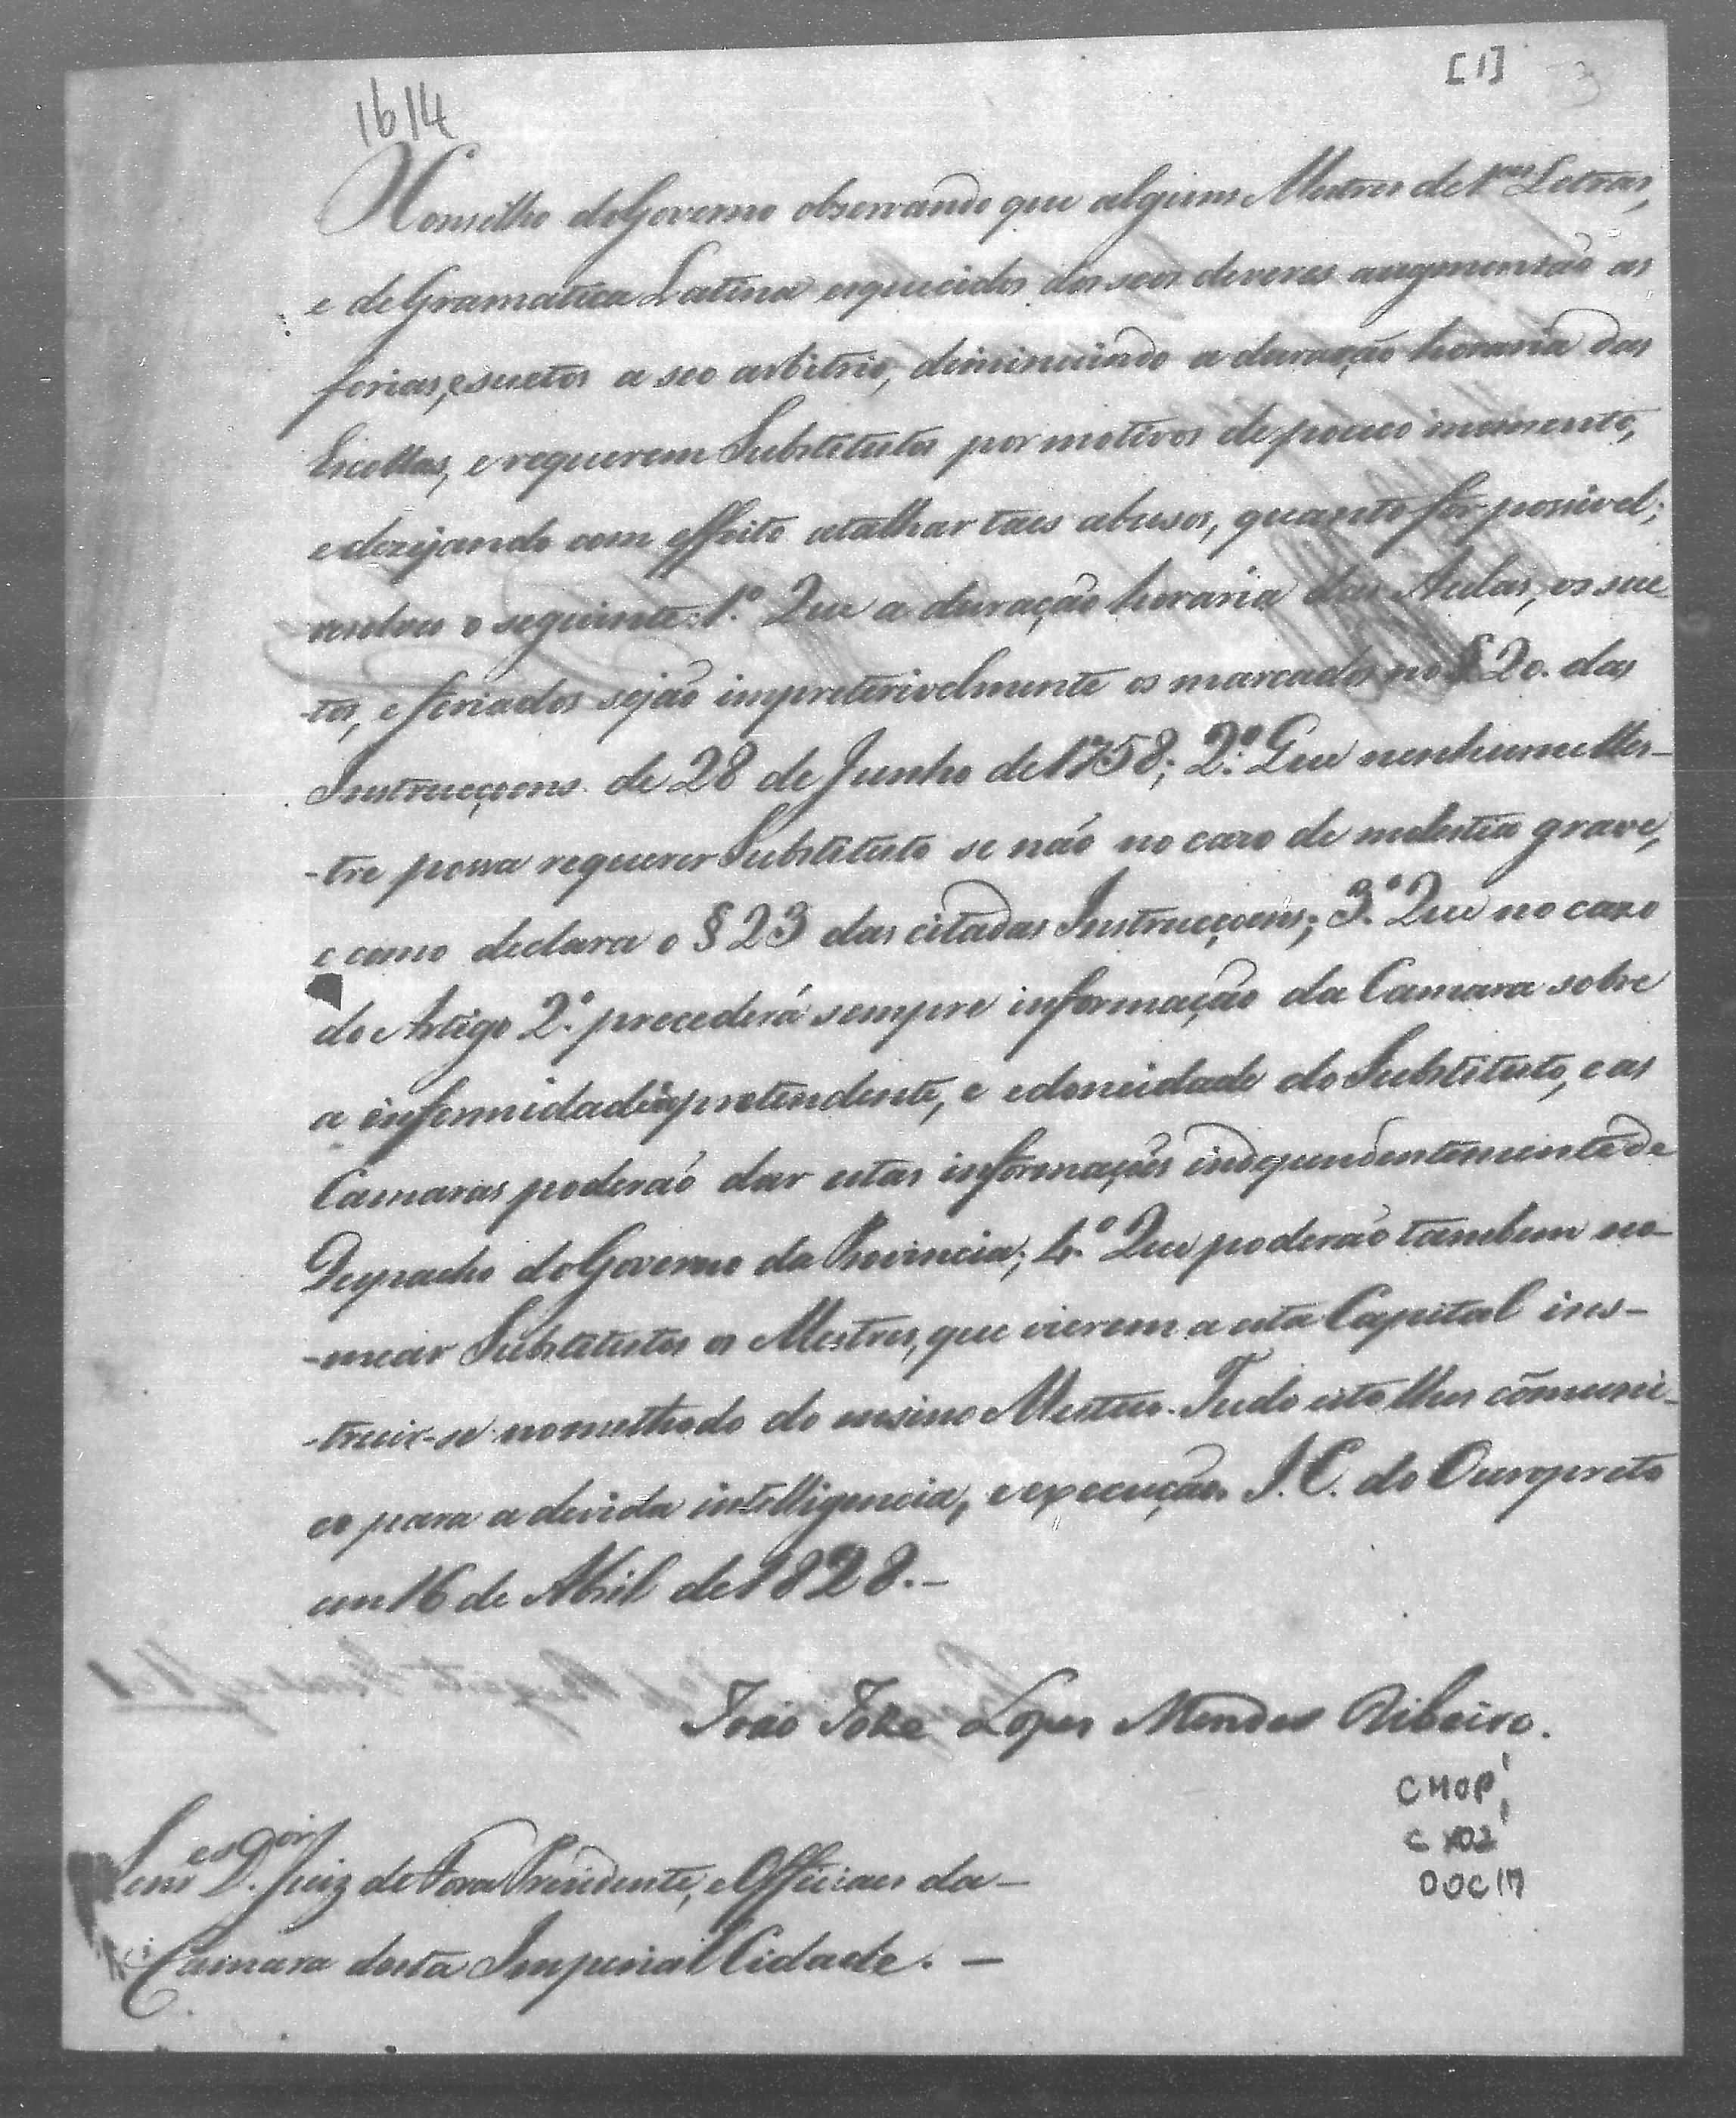 [1] 3
1614
O Conselho do Governo observando que alguns Mestres de 1.as Letras,
e de Gramatica Latina esquecidos dos seos deveres augmentão as
ferias, e suetos a seo arbitrio, diminuindo a duração horaria das
Escollas, e requerem Substitutos por motivos de pouco momento,
e dezejando com effeito atalhar taes abusos, quanto fôr possivel;
resolveu o seguinte: 1.º Que a duração horaria das Aulas, os sue-
-tos, e feriados sejão impreterivelmente os marcados no § 20. das
Instrucçoens de 28 de Junho de 1758; 2.º Que nenhum Mes-
-tre possa requerer Substituto se não no cazo de molestia grave,
e como declara o § 23 das citadas Instrucçoens; 3.º Que no cazo
do Artigo 2.º precederá sempre informação da Camara sobre
a enfermidade do pretendente, e edoneidade do Substituto, e as
Camaras poderão dar estas informações independentemente de
Despacho do Governo da Provincia; 4.º Que poderão tambem no-
-mear Substitutos os Mestres, que vierem a esta Capital ins-
-truir-se no methodo do ensino Mutuo. Tudo isto lhes cõmuni-
co para a devida intelligencia, e execução. I. C. do Ouropreto
em 16 de Abril de 1828. -
João Joze Lopes Mendes Ribeiro.
CMOP
CX02
DOC 17
D.or Juiz de Fora Prezidente, e Officiaes da -
Camara desta Imperial Cidade. -